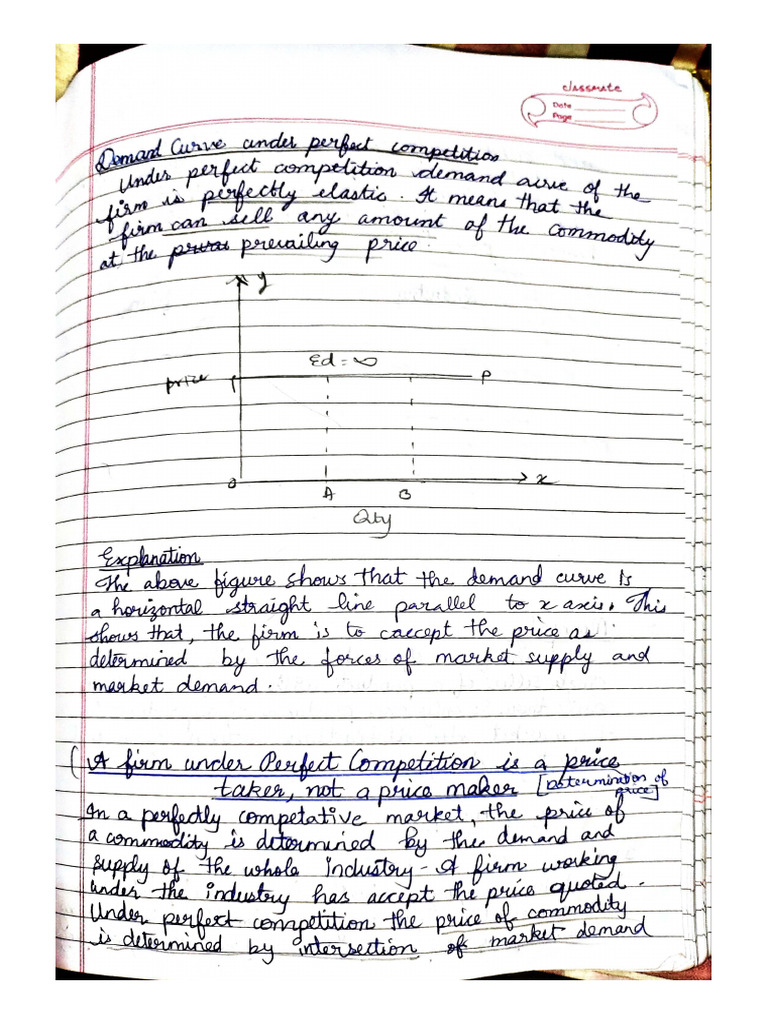 classmate
Date
Page
Demand Curve under perfect competition
Under perfect competition demand curve of the
firm is perfectly elastic. It means that the
firm can sell any amount of the commodity
at the prevailing price.
y
Ed = ∞
price P P
O A B x
Qty
Explanation
The above figure shows that the demand curve is
a horizontal straight line parallel to x axis. This
shows that, the firm is to caccept the price as
determined by the forces of market supply and
market demand.
(A firm under Perfect Competition is a price
taker, not a price maker [Determination of
price]
In a perfectly competative market, the price of
a commodity is determined by the demand and
supply of the whole industry - A firm working
under the industry has accept the price quoted.
Under perfect competition the price of commodity
is determined by intersection of market demand